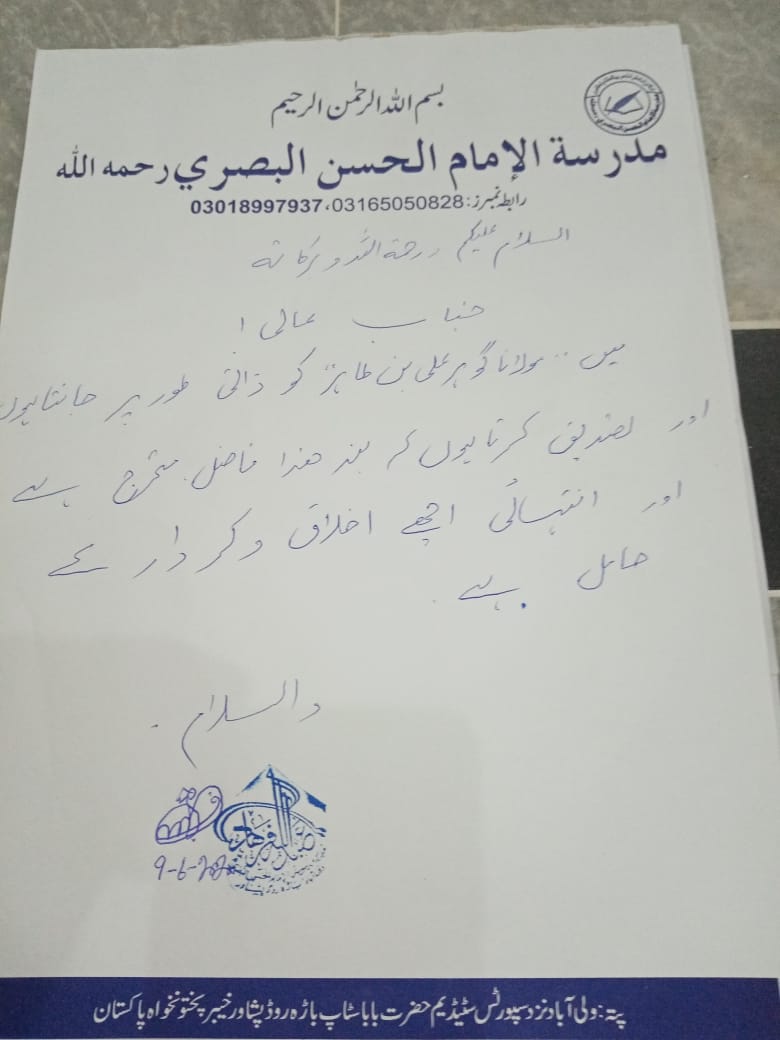 بسم اللہ الرحمٰن الرحیم
مدرسة الإمام الحسن البصري رحمه الله
رابطہ نمبرز: 03165050828، 03018997937
السلام علیکم ورحمة اللہ وبرکاتہ
جناب عالی!
میں .. مولانا گوہر علی بن طاہر کو ذاتی طور پر جانتا ہوں
اور تصدیق کرتا ہوں کہ بندہ ھذا فاضل متخرج ہے
اور انتہائی اچھے اخلاق وکردار کے
حامل ہے.
والسلام
9-6-
پتہ: ولی آباد نزد سپورٹس سٹیڈیم حضرت بابا سٹاپ باڑہ روڈ پشاور خیبر پختونخواہ پاکستان